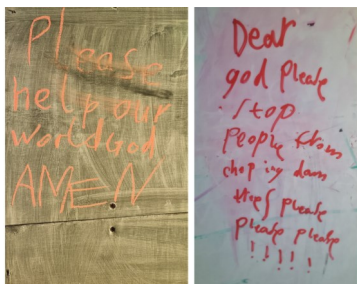 Please
help our
world God
AMEN
Dear
god please
stop
people from
choping down
trees please
please please
!!!!!